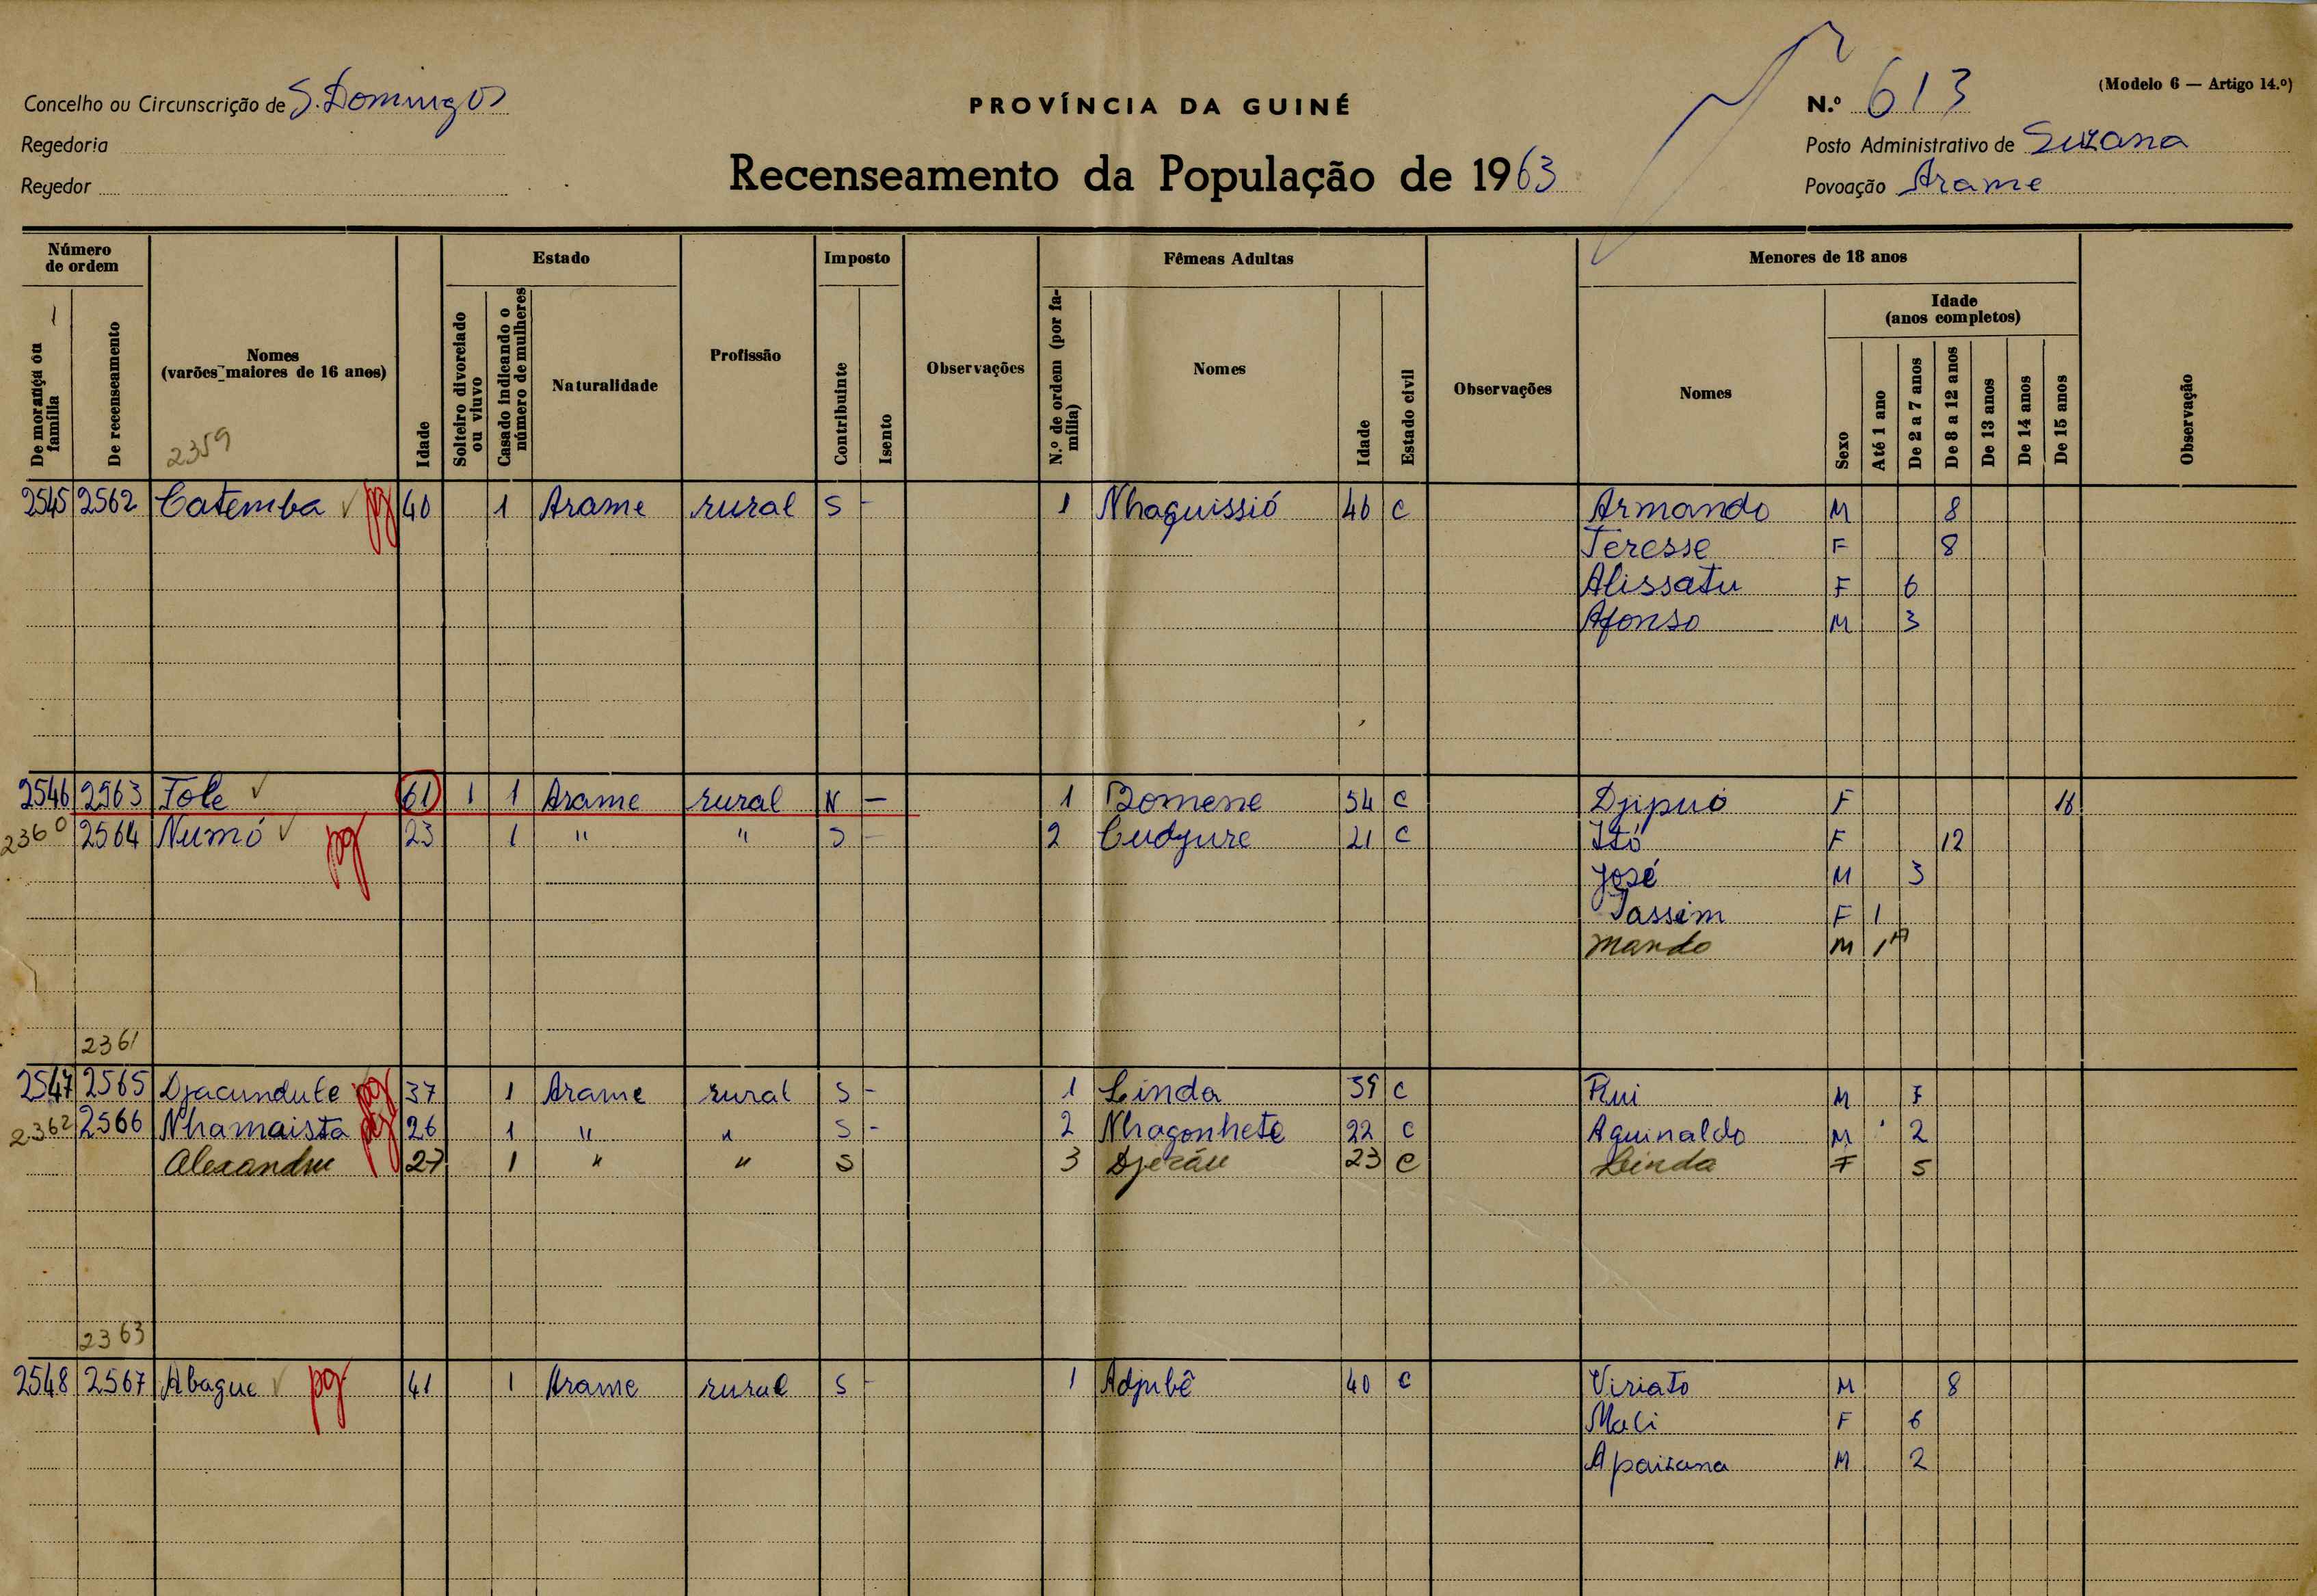 Concelho ou Circunscrição de S. Domingos
Regedoria
Regedor
PROVÍNCIA DA GUINÉ
Recenseamento da População de 1963
(Modelo 6 — Artigo 14.º)
N.º 613
Posto Administrativo de Suzana
Povoação Arame
Número de ordem
De morança ou família
De recenseamento
Nomes (varões maiores de 16 anos)
2359
Idade
Estado
Solteiro divorciado ou viuvo
Casado indicando o número de mulheres
Naturalidade
Profissão
Imposto
Contribuinte
Isento
Observações
Fêmeas Adultas
N.º de ordem (por família)
Nomes
Idade
Estado civil
Observações
Menores de 18 anos
Nomes
Sexo
Idade (anos completos)
Até 1 ano
De 2 a 7 anos
De 8 a 12 anos
De 13 anos
De 14 anos
De 15 anos
Observação
2545 2562 Catemba pg 40 1 Arame rural S - 1 Nhaquissió 40 C Armando M 8
Teresse F 8
Alissatu F 6
Afonso M 3
2546 2563 Tole 61 1 1 Arame rural N — 1 Bomene 54 C Djipuó F 16
2360 2564 Numó pg 23 1 " " S - 2 Cudjure 21 C Itó F 12
José M 3
Tassim F 1
Mando M 1
2361
2547 2565 Djacundule pg 37 1 Arame rural S - 1 Linda 39 C Rui M 7
2362 2566 Nhamaista pg 26 1 " " S - 2 Nhagonhete 22 C Aguinaldo M 2
Alexandre 27 1 " " S 3 23 C Linda F 5
2363
2548 2567 Abague pg 41 1 Arame rural S - 1 Adjubê 40 C Viriato M 8
Mali F 6
Apaizana M 2